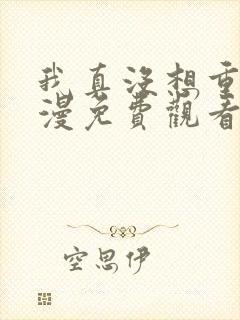 我真没想重
漫免費觀看
空思伊